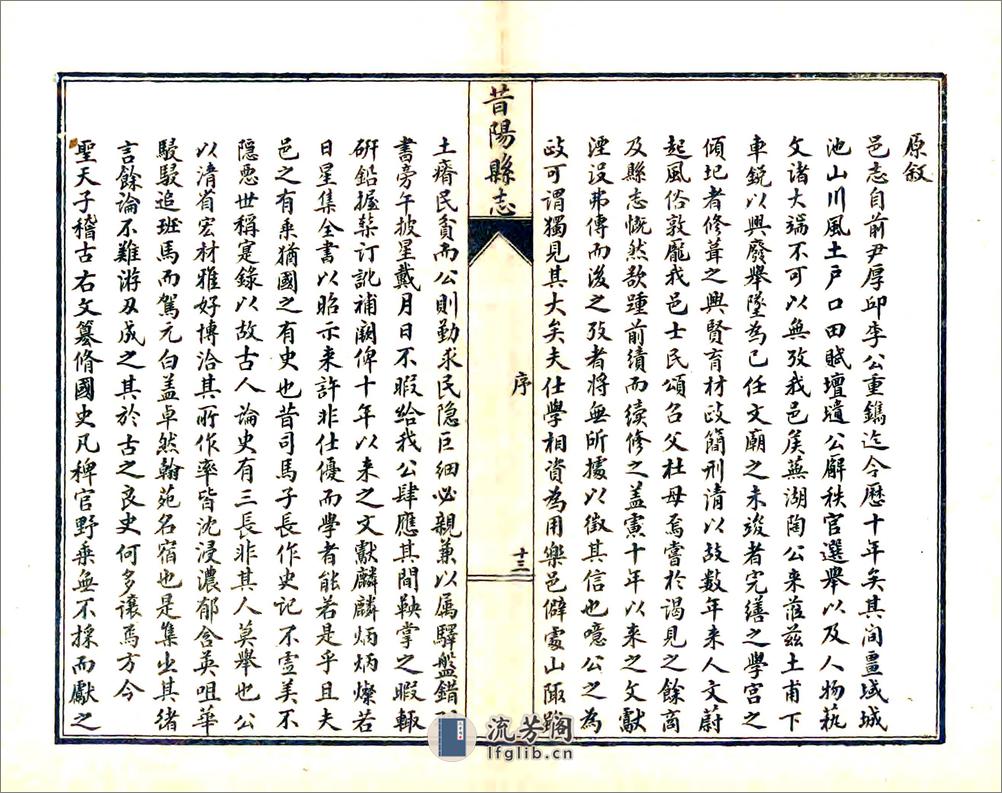 原敘
邑志自前尹厚邱李公重鐫迄今歷十年矣其间畺域城
池山川風土戶口田賦壇壝公廨秩官選舉以及人物藝
文諸大端不可以無攷我邑矦蕪湖陶公来蒞茲土甫下
車銳以興廢舉墜為己任文廟之未竣者完繕之學宮之
傾圮者修葺之興賢育材政簡刑清以故数年来人文蔚
起風俗敦龐我邑士民頌召父杜母焉嘗於谒見之餘商
及縣志慨然欲踵前績而續修之盖慮十年以来之文獻
湮没弗傳而後之攷者將無所據以徵其信也噫公之為
政可謂獨見其大矣夫仕學相資為用樂邑僻處山陬
昔陽縣志
序
十三
土瘠民貧而公則勤求民隐巨細必親兼以属驛盤錯
書旁午披星戴月日不暇给我公肆應其間鞅掌之暇輙
研鉛握槧訂訛補闕俾十年以来之文獻麟麟炳炳燦若
日星集全書以昭示来許非仕優而學者能若是乎且夫
邑之有乘猶國之有史也昔司馬子長作史记不虛美不
隱惡世稱寔錄以故古人論史有三長非其人莫舉也公
以清省宏材雅好博洽其所作率皆沈浸濃郁含英咀華
駸駸追班馬而駕元白盖卓然翰苑名宿也是集出其緒
言餘論不難游刃成之其於古之良史何多讓焉方今
聖天子稽古右文纂脩國史凡稗官野乘無不採而獻之
流芳阁
lfglib.cn